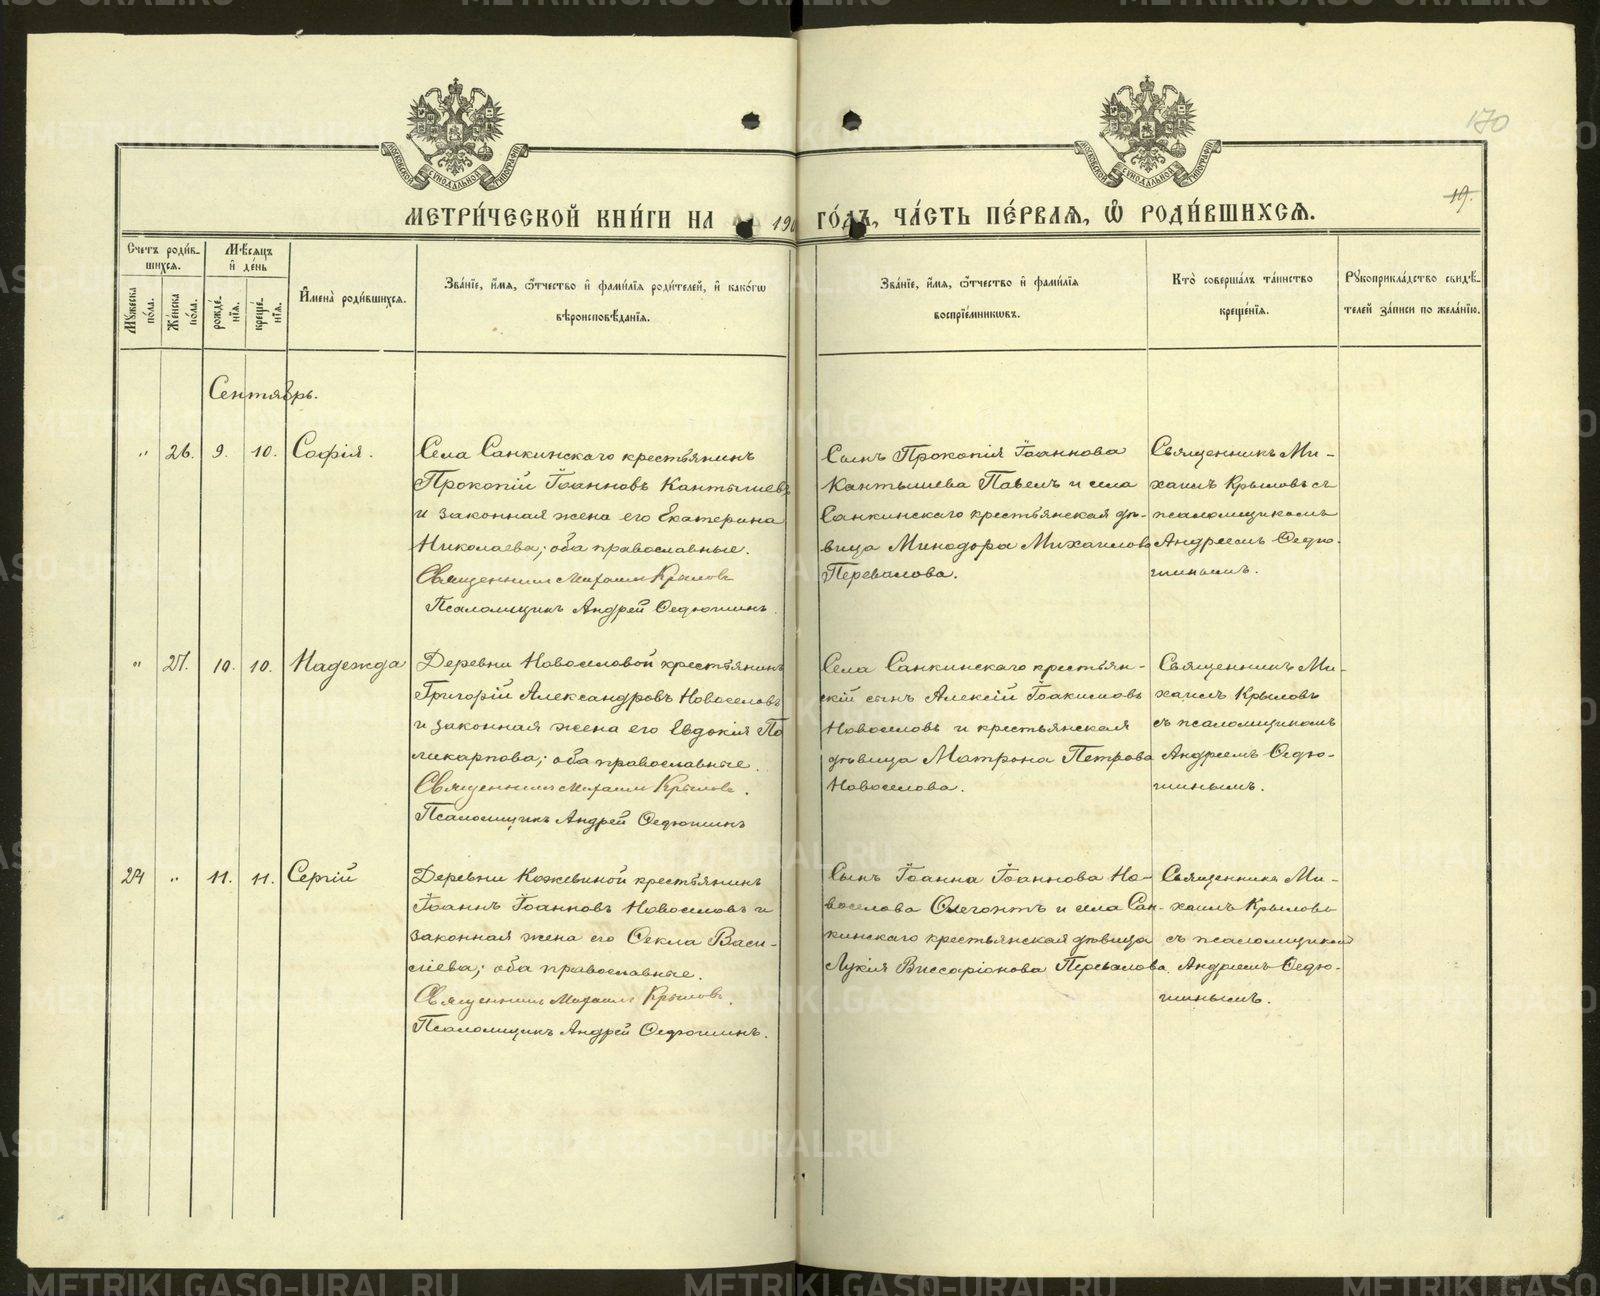 170
19.
МОСКОВСКОЙ СѴНОДАЛЬНОЙ ТИПОГРАФІИ
МОСКОВСКОЙ СѴНОДАЛЬНОЙ ТИПОГРАФІИ
МЕТРИ́ЧЕСКОЙ КНИ́ГИ НА 190 ГО́ДЪ, ЧА́СТЬ ПЕ́РВАЯ, Ѽ РОДИ́ВШИХСЯ.
Счетъ роди́в-
шихся.
Мѣсяцъ
и҆ де́нь
Мꙋжеска по́ла.
Же́нска по́ла.
рожде́нїя.
креще́нїя.
И҆мена̀ роди́вшихся.
Зва́нїе, и҆́мя, ѻ҆́тчество и҆ фами́лїѧ роди́телей, и҆ како́гѡ
вѣроисповѣ́данїя.
Зва́нїе, и҆́мя, ѻ҆́тчество и҆ фами́лїѧ
воспрїе́мникѡвъ.
Кто̀ соверша́лъ та́инство
креще́нїя.
Рꙋкоприкла́дство свидѣ́-
телей за́писи по жела́нїю.
Сентябрь.
" 26. 9. 10. Софія.
Села Санкинскаго крестьянинъ
Прокопій Іоанновъ Кантышевъ
и законная жена его Екатерина
Николаева; оба православные.
Священникъ Михаилъ Крыловъ
Псаломщикъ Андрей Ѳедюшинъ.
Сынъ Прокопія Іоаннова
Кантышева Павелъ и села
Санкинскаго крестьянская дѣ-
вица Минодора Михаилова
Перевалова.
Священникъ Ми-
хаилъ Крыловъ съ
псаломщикомъ
Андреемъ Ѳедю-
шинымъ.
" 27. 10. 10. Надежда
Деревни Новоселовой крестьянинъ
Григорій Александровъ Новоселовъ
и законная жена его Евдокія По
ликарпова; оба православные.
Священникъ Михаилъ Крыловъ.
Псаломщикъ Андрей Ѳедюшинъ
Села Санкинскаго крестьян-
скій сынъ Алексій Іоакимовъ
Новоселовъ и крестьянская
дѣвица Матрона Петрова
Новоселова.
Священникъ Ми-
хаилъ Крыловъ
съ псаломщикомъ
Андреемъ Ѳедю-
шинымъ.
24 " 11. 11. Сергій
Деревни Кожевиной крестьянинъ
Іоаннъ Іоанновъ Новоселовъ и
законная жена его Ѳекла Васи-
ліева; оба православные.
Священникъ Михаилъ Крыловъ.
Псаломщикъ Андрей Ѳедюшинъ.
Сынъ Іоанна Іоаннова Но-
воселова Олегонтъ и села Сан-
кинскаго крестьянская дѣвица
Лукія Виссаріонова Перевалова.
Священникъ Ми-
хаилъ Крыловъ
съ псаломщикомъ
Андреемъ Ѳедю-
шинымъ.
METRIKI.GASO-URAL.RU